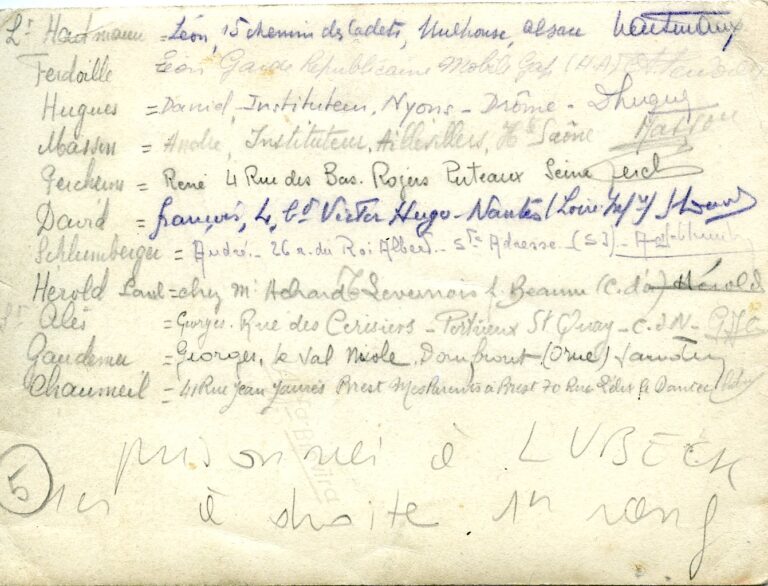 Lt Hartmann = Léon, 15 chemin des Cadets, Mulhouse, Alsace
Ferdoille Léon Garde Républicaine Mobile Gap (H A)
Hugues = Daniel, Instituteur, Nyons - Drôme - DHugues
Masson = André, Instituteur, Aillevillers, Hte Saône Masson
= René 4 Rue des Bas. Rogers Puteaux Seine
David = françois, 4, Bd Victor Hugo - Nantes (Loire Inf)
Schlumberger = André - 26 r. du Roi Albert - Ste Adresse - (S I) -
Hérold Paul = chez Mr Achard Levernois p. Beaune (C. d'o) Hérold
Alès = Georges. Rue des Cerisiers - Portrieux St Quay - C. d N -
= Georges, le Val Nicole. Domfront (Orne)
Chaumeil = 41 Rue Jean Jaurès Brest Mes Parents à Brest 70 Rue Félix le Dantec
prisonnier à LUBECK
5
à droite 1er rang